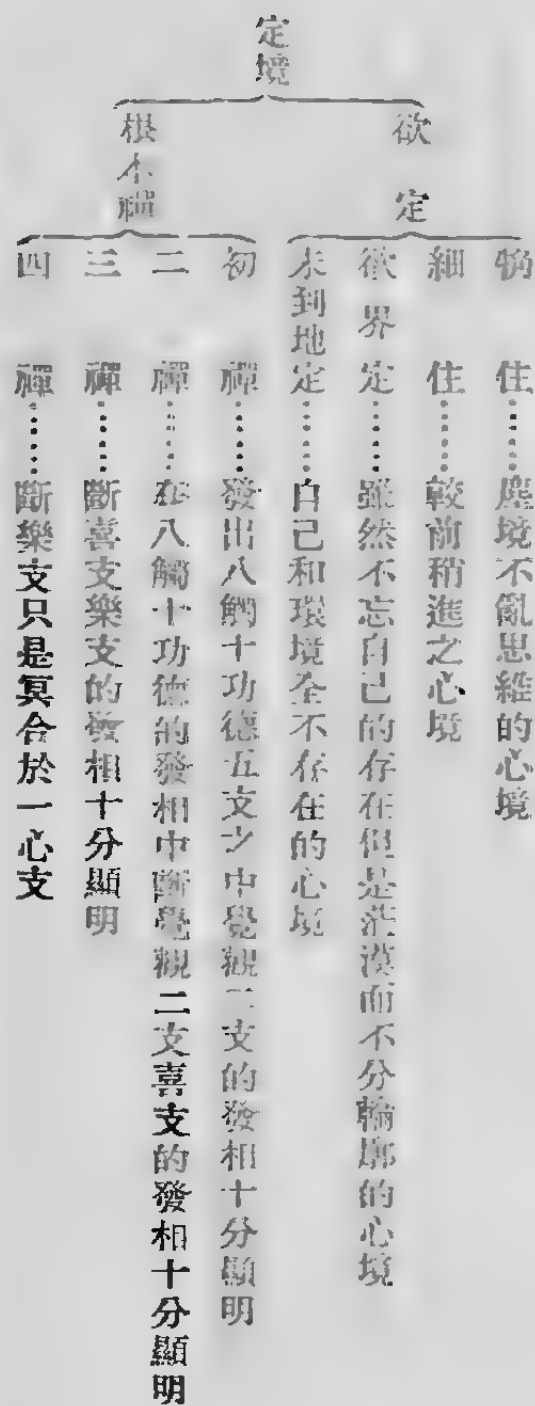 定境
欲定
麁住……塵境不亂思維的心境
細住……較前稍進之心境
欲界定……雖然不忘自己的存在但是茫漠而不分輪廓的心境
未到地定……自己和環境全不存在的心境
根本禪
初禪……發出八觸十功德五支之中覺觀二支的發相十分顯明
二禪……在八觸十功德的發相中斷覺觀二支喜支的發相十分顯明
三禪……斷喜支樂支的發相十分顯明
四禪……斷樂支只是冥合於一心支